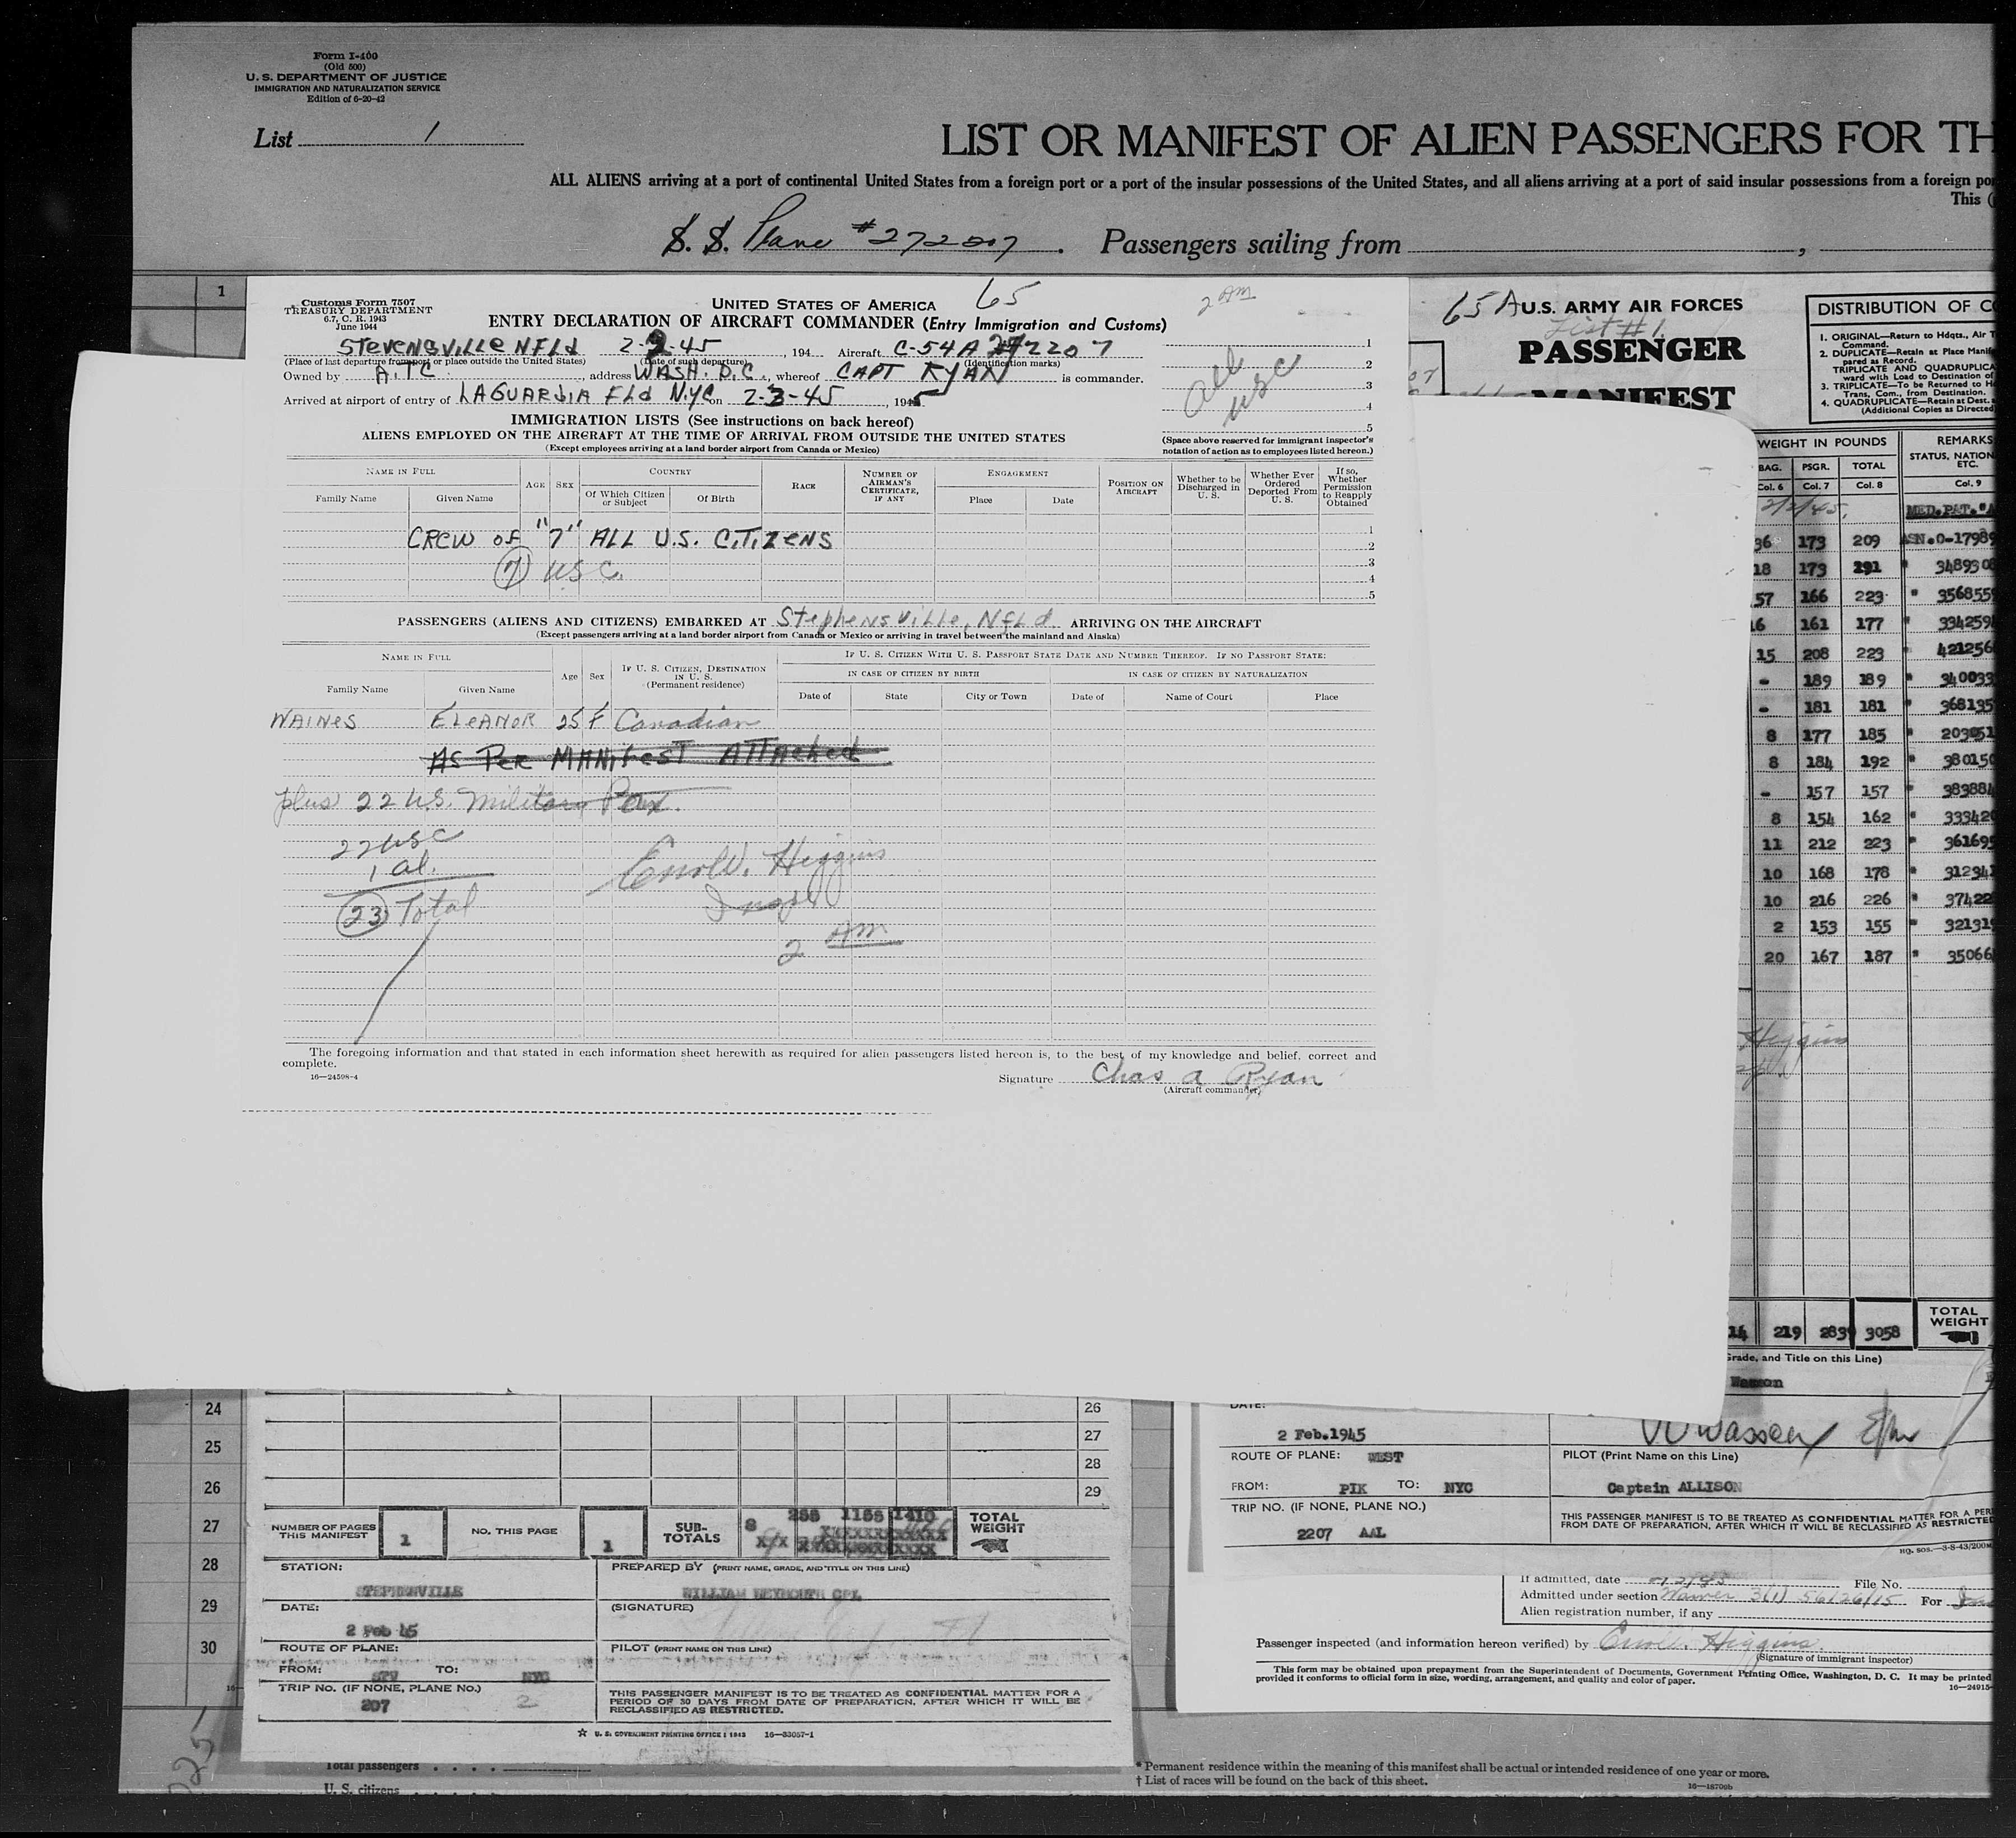 Form I-400
(Old 500)
U. S. DEPARTMENT OF JUSTICE
IMMIGRATION AND NATURALIZATION SERVICE
Edition of 6-20-42
List 1
LIST OR MANIFEST OF ALIEN PASSENGERS FOR TH
ALL ALIENS arriving at a port of continental United States from a foreign port or a port of the insular possessions of the United States, and all aliens arriving at a port of said insular possessions from a foreign po
This (
S. S. Plane #272207. Passengers sailing from ,
1
Customs Form 7507
TREASURY DEPARTMENT
6.7, C. R. 1943
June 1944
UNITED STATES OF AMERICA 65
ENTRY DECLARATION OF AIRCRAFT COMMANDER (Entry Immigration and Customs)
2 AM
STEVENSVILLE NFLD 2-2-45, 194 Aircraft C-54A 272207
(Place of last departure from port or place outside the United States) (Date of such departure) (Identification marks)
Owned by A.T.C., address WASH. D.C., whereof CAPT RYAN is commander.
Arrived at airport of entry of LAGUARDIA FLD NYC on 2-3-45, 1945
1
2
3
4
5
all
USC
(Space above reserved for immigrant inspector's
notation of action as to employees listed hereon.)
IMMIGRATION LISTS (See instructions on back hereof)
ALIENS EMPLOYED ON THE AIRCRAFT AT THE TIME OF ARRIVAL FROM OUTSIDE THE UNITED STATES
(Except employees arriving at a land border airport from Canada or Mexico)
NAME IN FULL
Family Name Given Name
AGE SEX
COUNTRY
Of Which Citizen or Subject Of Birth
RACE
NUMBER OF AIRMAN'S CERTIFICATE, IF ANY
ENGAGEMENT
Place Date
POSITION ON AIRCRAFT
Whether to be Discharged in U. S.
Whether Ever Ordered Deported From U. S.
If so, Whether Permission to Reapply Obtained
CREW OF "7" ALL U.S. CITIZENS
7 USC.
1
2
3
4
5
PASSENGERS (ALIENS AND CITIZENS) EMBARKED AT Stephensville, NFLd. ARRIVING ON THE AIRCRAFT
(Except passengers arriving at a land border airport from Canada or Mexico or arriving in travel between the mainland and Alaska)
NAME IN FULL
Family Name Given Name
Age Sex
IF U. S. CITIZEN, DESTINATION IN U. S. (Permanent residence)
IF U. S. CITIZEN WITH U. S. PASSPORT STATE DATE AND NUMBER THEREOF. IF NO PASSPORT STATE:
IN CASE OF CITIZEN BY BIRTH IN CASE OF CITIZEN BY NATURALIZATION
Date of State City or Town Date of Name of Court Place
WAINES ELEANOR 25 F Canadian
AS PER MANIFEST ATTACHED
plus 22 U.S. Military Pax.
22 USC
1 al.
23 Total
Errol W. Higgins
Insp
2 AM
The foregoing information and that stated in each information sheet herewith as required for alien passengers listed hereon is, to the best of my knowledge and belief, correct and
complete.
16—24598-4
Signature Chas A Ryan
(Aircraft commander)
65 A U.S. ARMY AIR FORCES
List #1
PASSENGER
MANIFEST
DISTRIBUTION OF C
1. ORIGINAL—Return to Hdqts., Air T
Command.
2. DUPLICATE—Retain at Place Manif
pared as Record.
TRIPLICATE AND QUADRUPLICA
ward with Load to Destination of
3. TRIPLICATE—To be Returned to H
Trans. Com., from Destination.
4. QUADRUPLICATE—Retain at Dest.
(Additional Copies as Directed
WEIGHT IN POUNDS REMARKS
STATUS, NATION
ETC.
BAG. PSGR. TOTAL
Col. 6 Col. 7 Col. 8 Col. 9
2/2/45. MED.PAT."A
36 173 209 ASN.O-17989
18 173 291 3489308
57 166 223 " 3568559
16 161 177 " 334259
15 208 223 " 421256
- 189 189 " 340033
- 181 181 " 368135
8 177 185 " 203051
8 184 192 " 380150
- 157 157 " 383884
8 154 162 " 333420
11 212 223 " 361695
10 168 178 " 312341
10 216 226 " 37422
2 153 155 " 321319
20 167 187 " 35066
Higgins
14 219 2839 3058 TOTAL WEIGHT
Grade, and Title on this Line)
Wasson
DATE:
2 Feb.1945
W Wasson
ROUTE OF PLANE: WEST
PILOT (Print Name on this Line)
FROM: PIK TO: NYC
Captain ALLISON
TRIP NO. (IF NONE, PLANE NO.)
2207 AAL
THIS PASSENGER MANIFEST IS TO BE TREATED AS CONFIDENTIAL MATTER FOR A PER
FROM DATE OF PREPARATION, AFTER WHICH IT WILL BE RECLASSIFIED AS RESTRICTED
HQ. SOS.—3-8-43/200M
If admitted, date File No.
Admitted under section Waiver 3(1) 56126/15 For
Alien registration number, if any
Passenger inspected (and information hereon verified) by Errol W. Higgins
(Signature of immigrant inspector)
This form may be obtained upon prepayment from the Superintendent of Documents, Government Printing Office, Washington, D. C. It may be printed
provided it conforms to official form in size, wording, arrangement, and quality and color of paper.
16—24915-
24
25
26
27
28
29
30
26
27
28
29
NUMBER OF PAGES THIS MANIFEST 1 NO. THIS PAGE 1 SUB-TOTALS 8 255 1155 1410 TOTAL WEIGHT
STATION:
STEPHENVILLE
PREPARED BY (PRINT NAME, GRADE, AND TITLE ON THIS LINE)
WILLIAM WEYMOUTH CPL
DATE:
2 Feb 45
(SIGNATURE)
ROUTE OF PLANE:
PILOT (PRINT NAME ON THIS LINE)
FROM: STV TO: NYC
TRIP NO. (IF NONE, PLANE NO.)
207 2
THIS PASSENGER MANIFEST IS TO BE TREATED AS CONFIDENTIAL MATTER FOR A
PERIOD OF 30 DAYS FROM DATE OF PREPARATION, AFTER WHICH IT WILL BE
RECLASSIFIED AS RESTRICTED.
☆ U. S. GOVERNMENT PRINTING OFFICE: 1943 16—33057-1
Total passengers
U. S. citizens
* Permanent residence within the meaning of this manifest shall be actual or intended residence of one year or more.
† List of races will be found on the back of this sheet.
16—18700b